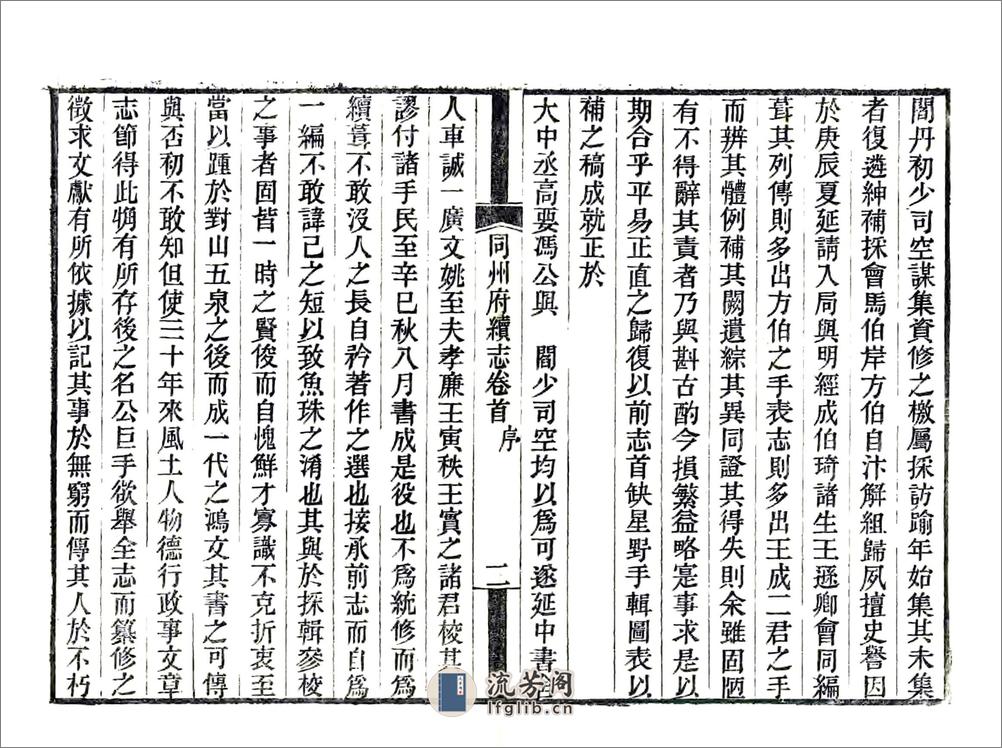 閻丹初少司空謀集資修之檄屬採訪踰年始集其未集
者復遴紳補採會馬伯岸方伯自汴解組歸夙擅史譽因
於庚辰夏延請入局與明經成伯琦諸生王遜卿會同編
葺其列傳則多出方伯之手表志則多出王成二君之手
而辨其體例補其闕遺綜其異同證其得失則余雖固陋
有不得辭其責者乃與斟古酌今損繁益略寔事求是以
期合乎平易正直之歸復以前志首缺星野手輯圖表以
補之稿成就正於
大中丞高要馮公與 閻少司空均以爲可遂延中書
同州府續志卷首 序 二
人車誠一廣文姚至夫孝廉王寅秩王實之諸君校其
謬付諸手民至辛巳秋八月書成是役也不爲統修而爲
續葺不敢沒人之長自矜著作之選也接承前志而自爲
一編不敢諱己之短以致魚珠之淆也其與於採輯參校
之事者固皆一時之賢俊而自愧鮮才寡識不克折衷至
當以踵於對山五泉之後而成一代之鴻文其書之可傳
與否初不敢知但使三十年來風土人物德行政事文章
志節得此猶有所存後之名公巨手欲舉全志而纂修之
徵求文獻有所依據以記其事於無窮而傳其人於不朽
流芳阁
lfglib.cn